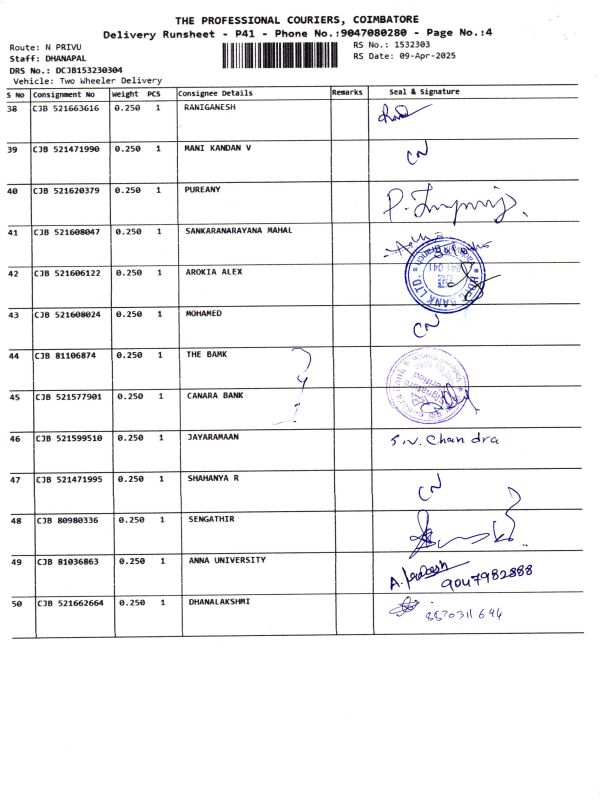 THE PROFESSIONAL COURIERS, COIMBATORE
Delivery Runsheet - P41 - Phone No.:9047080280 - Page No.:4
Route: N PRIVU RS No.: 1532303
Staff: DHANAPAL RS Date: 09-Apr-2025
DRS No.: DCJB153230304
Vehicle: Two Wheeler Delivery
S No Consignment No Weight PCS Consignee Details Remarks Seal & Signature
38 CJB 521663616 0.250 1 RANIGANESH
39 CJB 521471990 0.250 1 MANI KANDAN V CN
40 CJB 521620379 0.250 1 PUREANY
41 CJB 521608047 0.250 1 SANKARANARAYANA MAHAL
42 CJB 521606122 0.250 1 AROKIA ALEX
BANK LTD.
43 CJB 521608024 0.250 1 MOHAMED CN
44 CJB 81106874 0.250 1 THE BAMK
45 CJB 521577901 0.250 1 CANARA BANK
46 CJB 521599510 0.250 1 JAYARAMAAN S.N. Chandra
47 CJB 521471995 0.250 1 SHAHANYA R CN
48 CJB 80980336 0.250 1 SENGATHIR
49 CJB 81036863 0.250 1 ANNA UNIVERSITY 9047982888
50 CJB 521662664 0.250 1 DHANALAKSHMI 8870311694